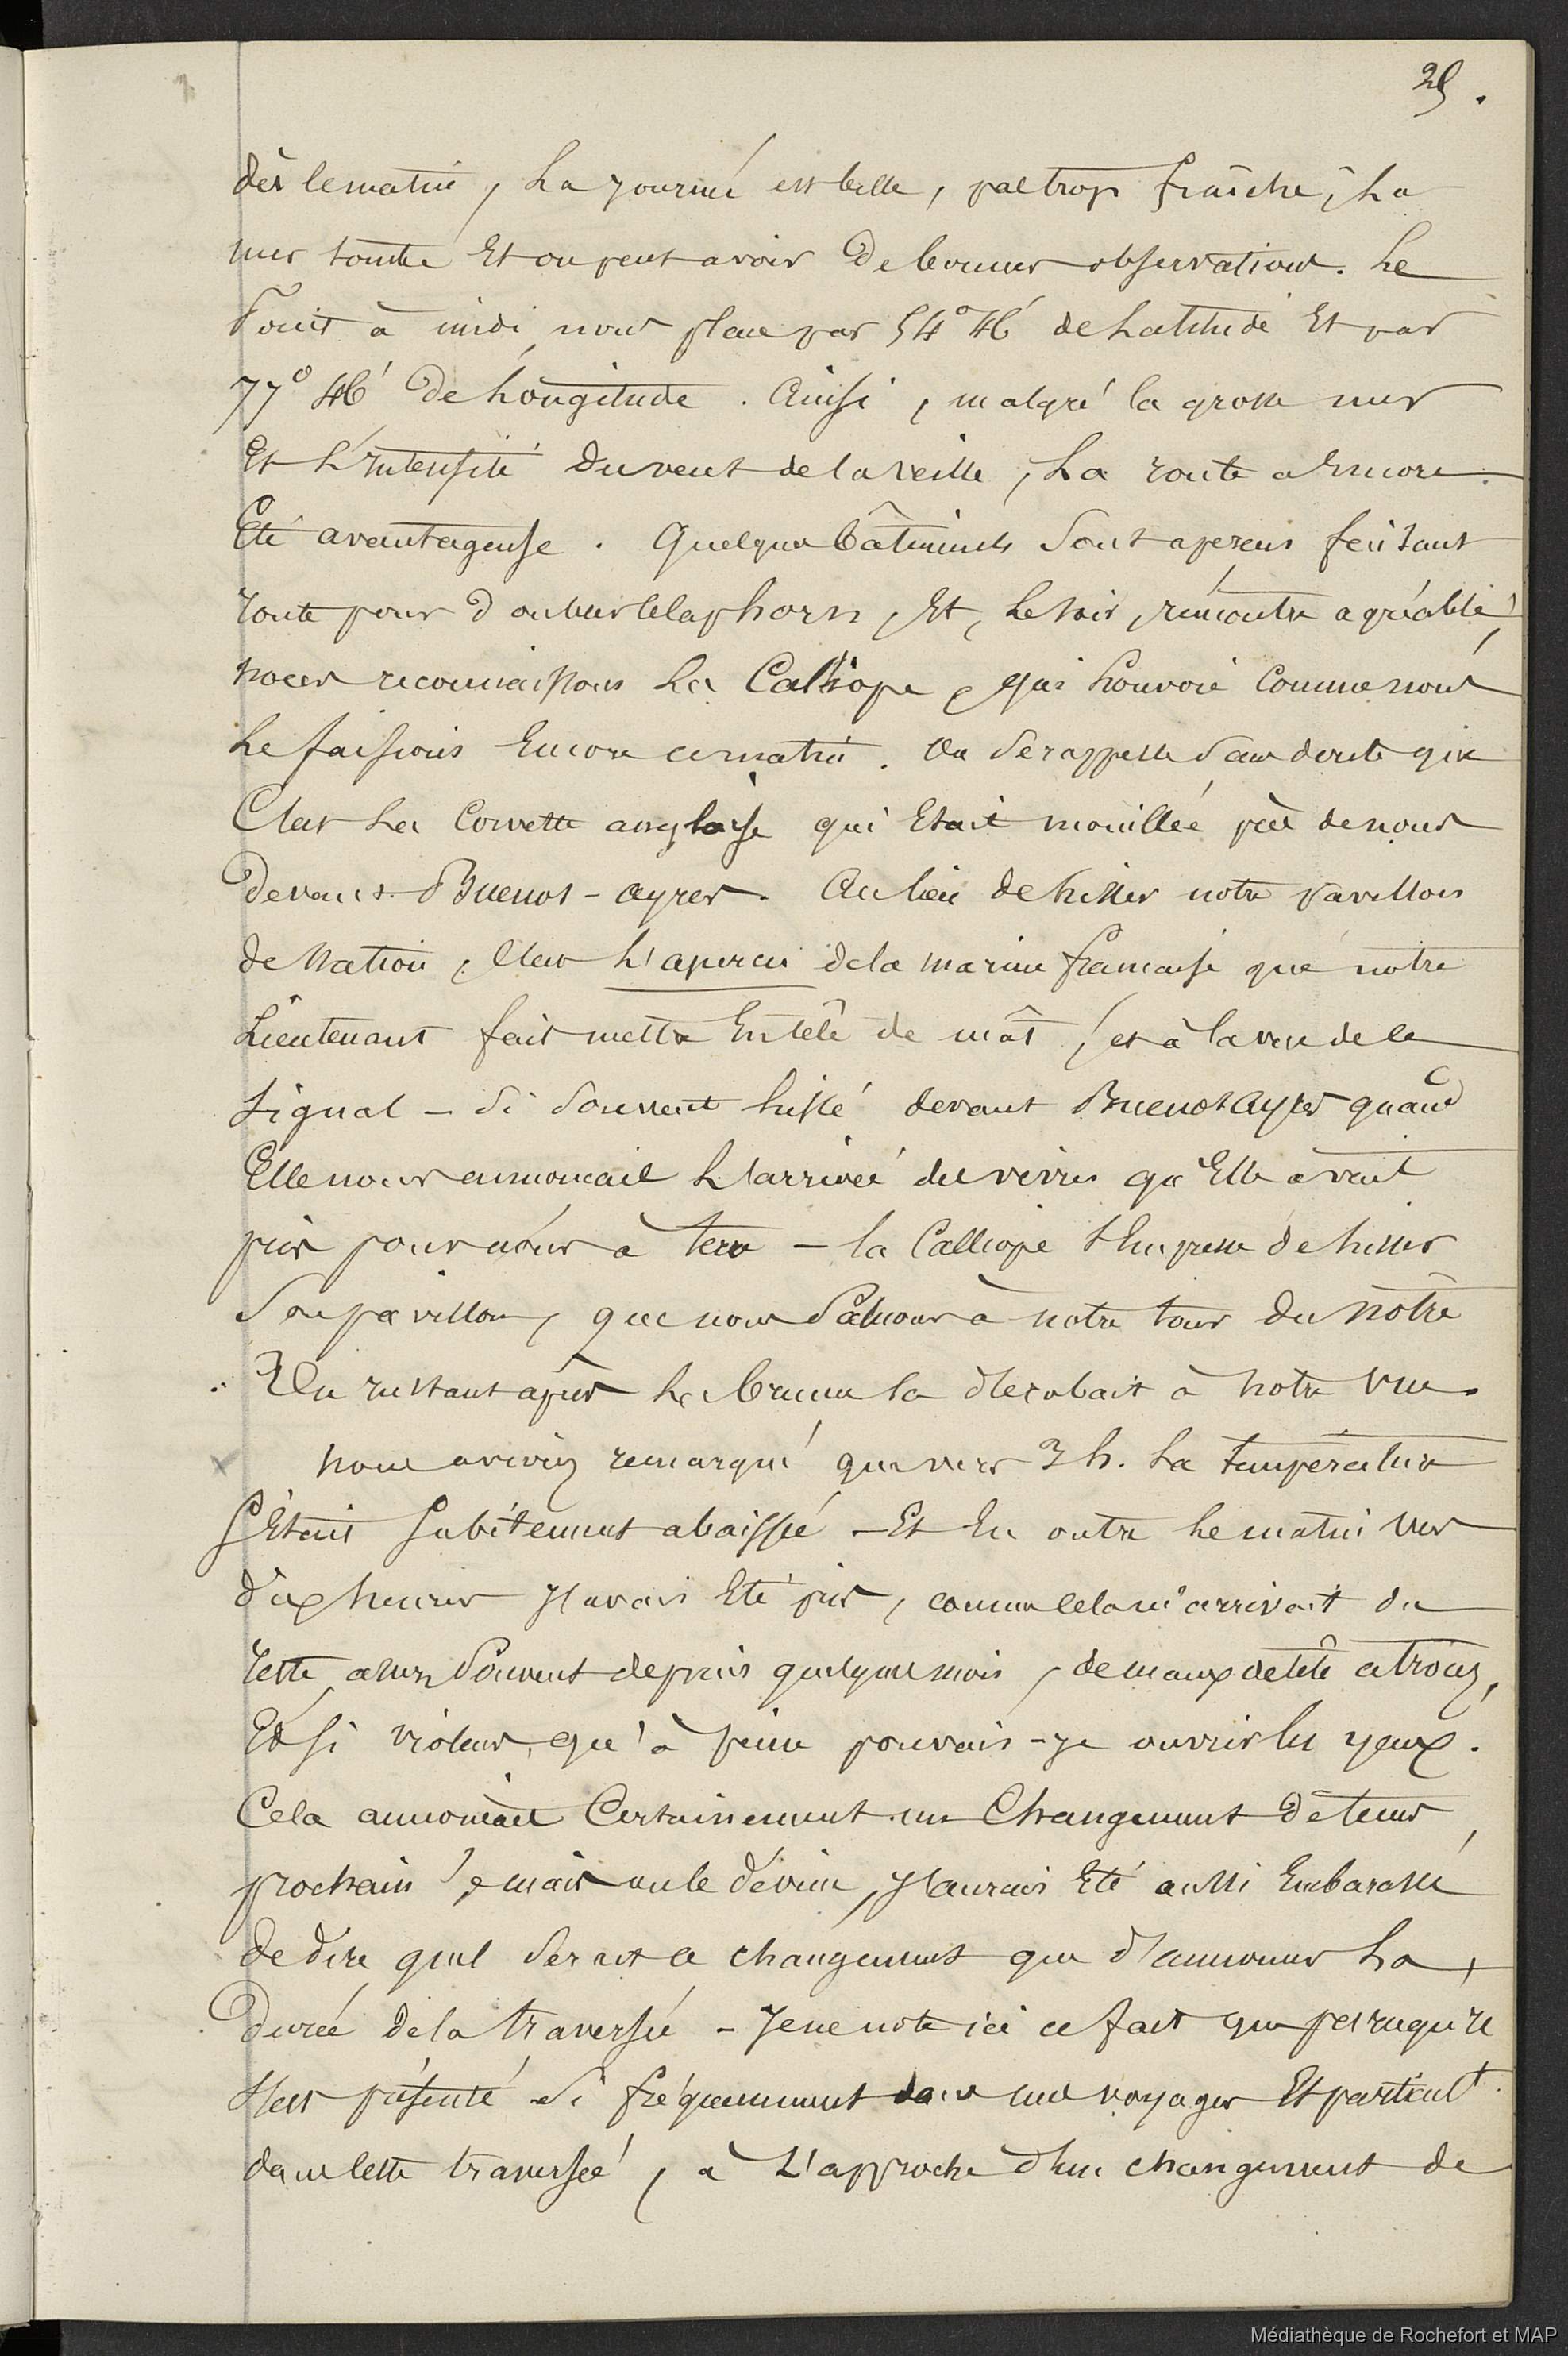 29.
dès le matin, La journée est belle, pas trop fraîche, La
mer tombe Et on peut avoir De bonnes observations. Le
Point à midi nous place par 54° 46' de Latitude Et par
77° 46' De Longitude. Ainsi, malgré la grosse mer
Et L'intensité du vent de la veille, La route a Encore
Eté avantageuse. Quelques bâtiments Sont aperçus faisant
route pour Doubler le cap horn, Et, Le soir, rencontre agréable,
nous reconnaissons La Calliope, qui louvoie Comme nous
Le faisions Encore ce matin. On Se rappelle Sans doute que
C'est La Corvette anglaise qui Etait mouillée près de nous
Devant Buenos-ayres. Au lieu de hisser notre pavillon
de Nation, C'est L'aperçu de la marine française que notre
Lieutenant fait mettre En tête de mât, et à la vue de ce
Signal - Si Souvent hissé devant Buenos Ayres quand
Elle nous annonçait L'arrivée des vivres qu'Elle avait
pris pour nous à terre - la Calliope S'empresse de hisser
Son pavillon, que nous Saluons à notre tour du nôtre
Un instant après La brume la dérobait à notre vue.
Nous avions remarqué que vers 3 h. La température
S'Etait Subitement abaissée - Et En outre Le matin vers
dix heures J'avais Eté pris, comme cela m'arrivait du
reste assez Souvent depuis quelques mois, de maux de tête atroces,
Et Si violents, qu'à peine pouvais-je ouvrir les yeux.
Cela annonçait Certainement un Changement de temps
prochain, mais on le devine, J'aurais Eté aussi Embarassé
de dire quel Serait ce changement que d'annoncer La
Durée de la traversée - Je ne note ici ce fait que parce qu'il
S'est présenté Si fréquemment dans mes voyages Et particult
dans cette traversée, à L'approche d'un changement de
Médiathèque de Rochefort et MAP